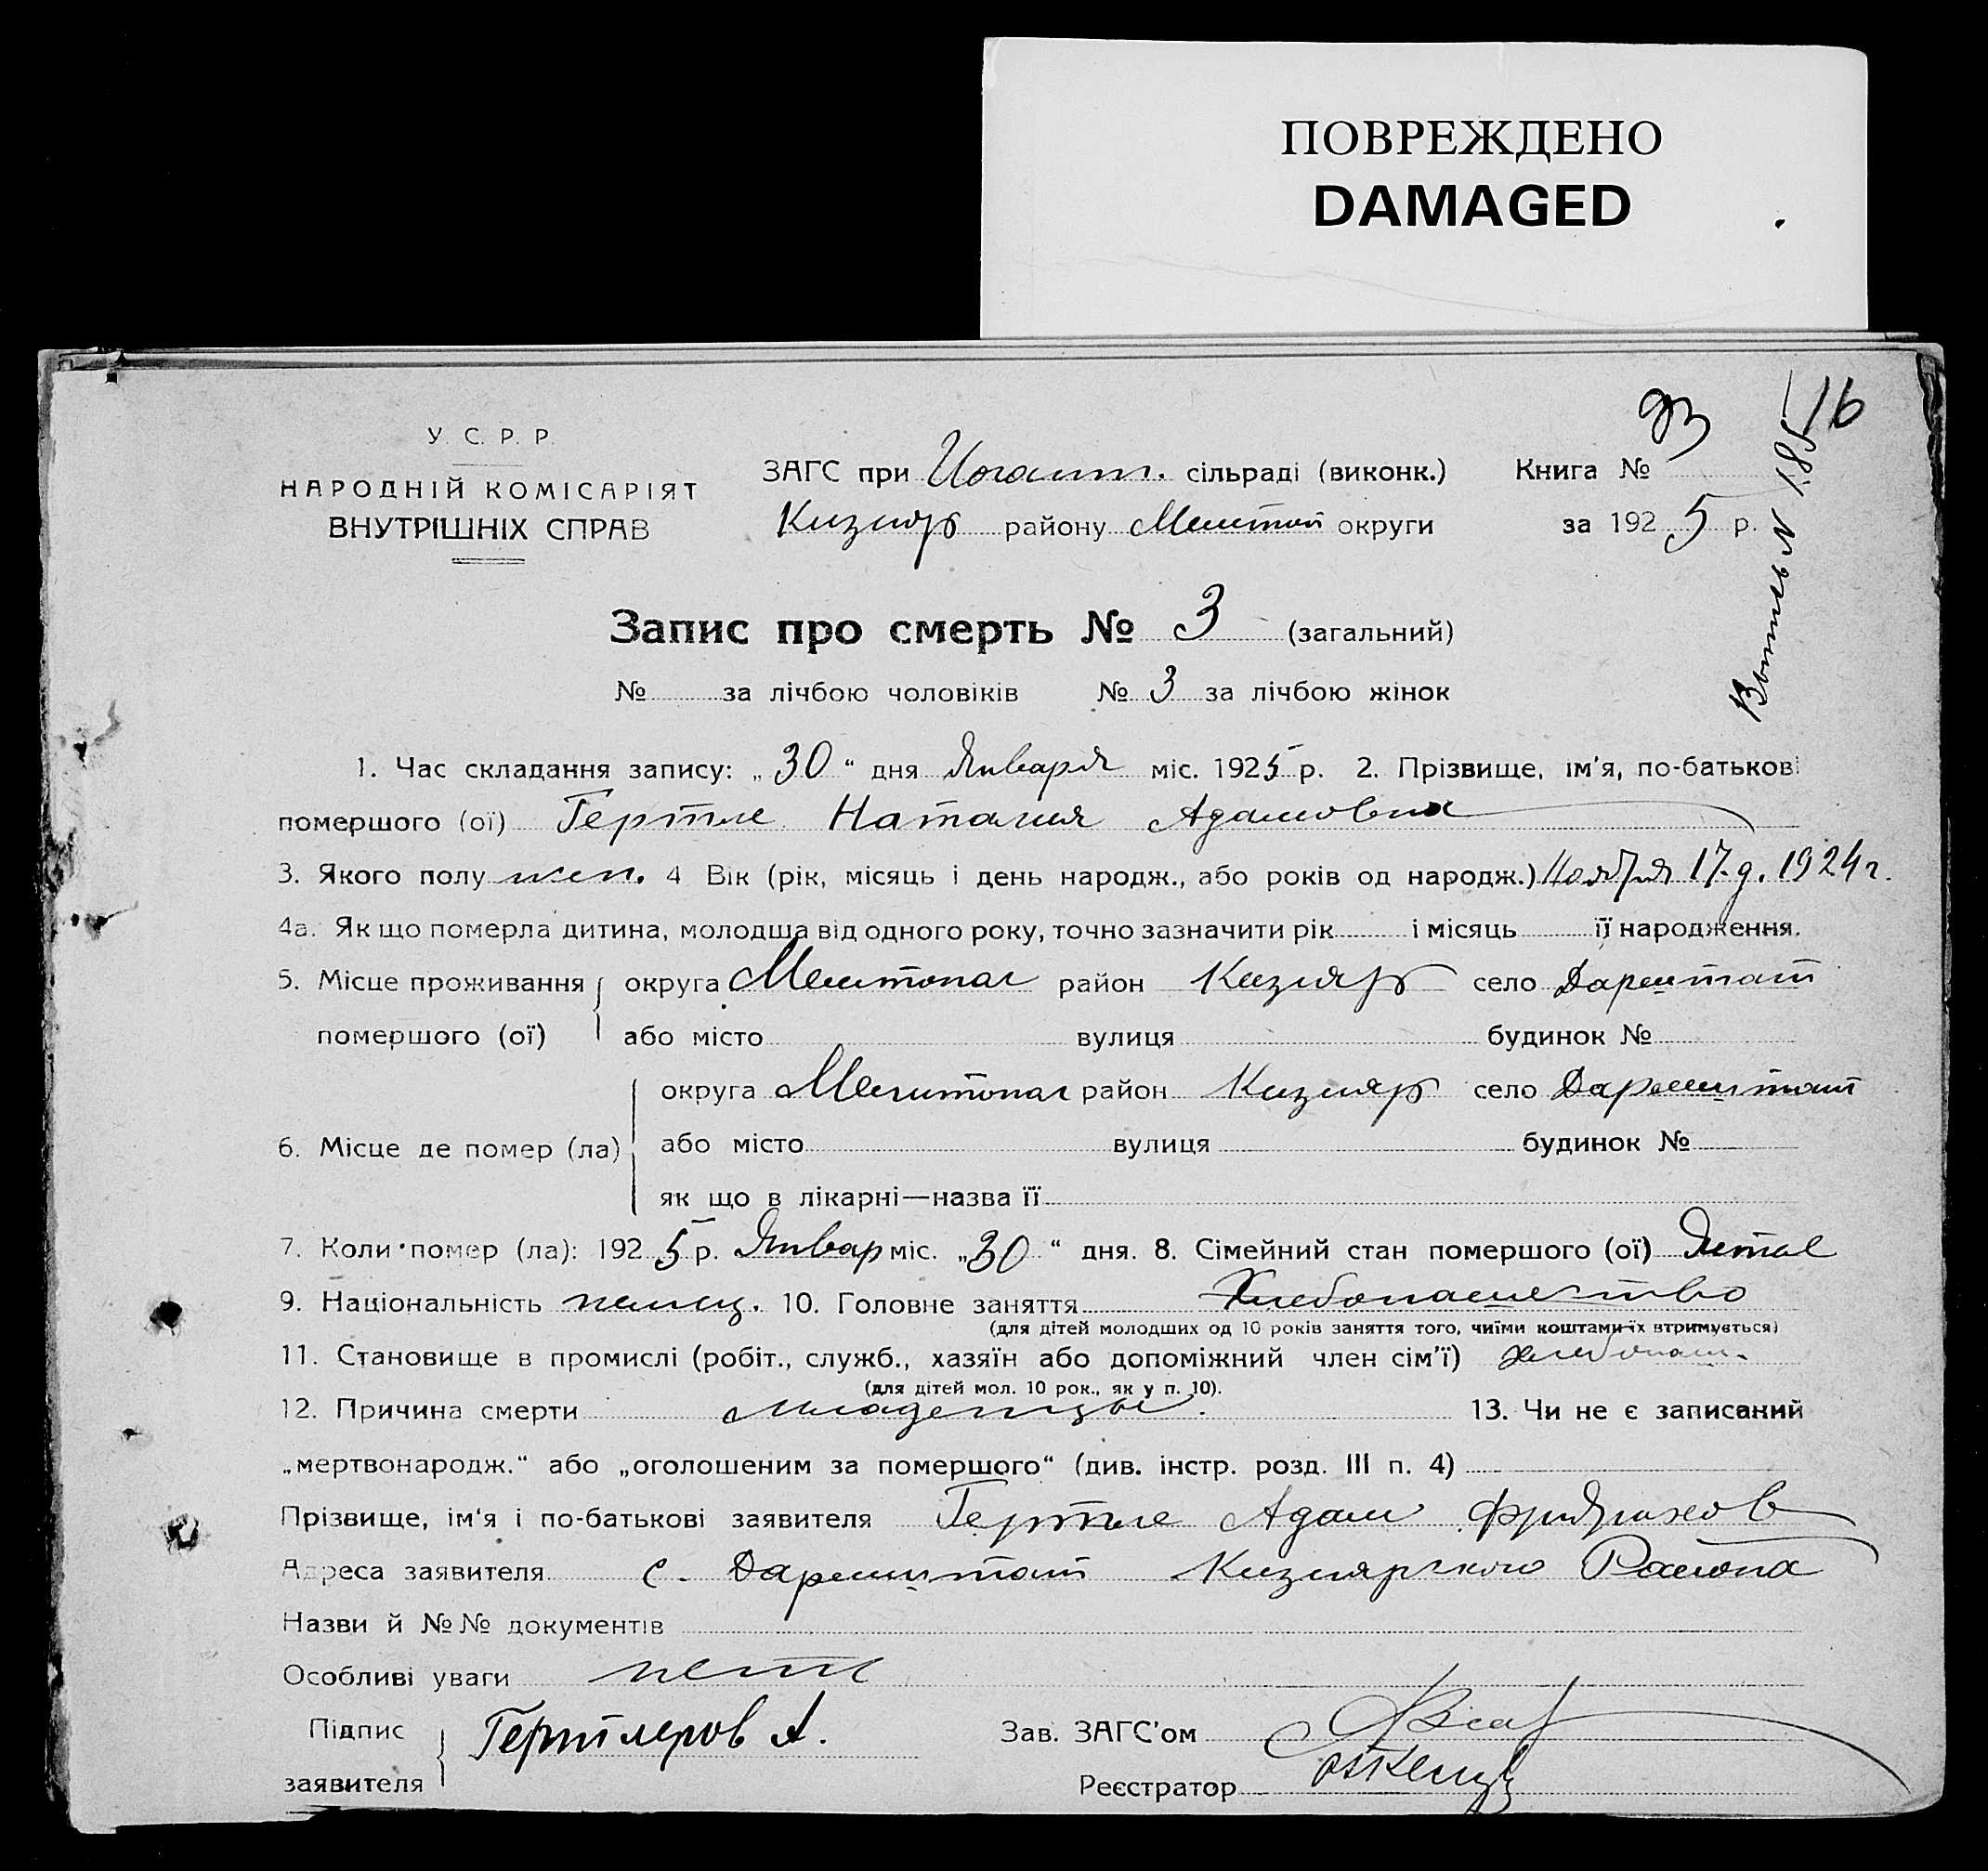 ПОВРЕЖДЕНО
DAMAGED
16
У. С. Р. Р.
НАРОДНІЙ КОМІСАРІЯТ
ВНУТРІШНІХ СПРАВ
ЗАГС при сільраді (виконк.)
Кизияр району округи
Книга №
за 1925 р.
Запис про смерть № 3 (загальний)
№ за лічбою чоловіків № 3 за лічбою жінок
1. Час складання запису: „30“ дня Января міс. 1925 р. 2. Прізвище, ім'я, по-батькові
помершого (ої) Гертле Наталия Адамовна
3. Якого полу жен. 4 Вік (рік, місяць і день народж., або років од народж.) Ноября 17 д. 1924 г.
4а. Як що померла дитина, молодша від одного року, точно зазначити рік і місяць її народження.
5. Місце проживання округа Мелитопол район Кизияр село Дармштат
помершого (ої) або місто вулиця будинок №
округа Мелитопол район Кизияр село Дармштат
6. Місце де помер (ла) або місто вулиця будинок №
як що в лікарні—назва її
7. Коли помер (ла): 1925 р. Январ міс. „30“ дня. 8. Сімейний стан помершого (ої)
9. Національність немец. 10. Головне заняття Хлебопашество
(для дітей молодших од 10 років заняття того, чиїми коштами їх втримується)
11. Становище в промислі (робіт., служб., хазяїн або допоміжний член сім'ї) хлебопаш.
(для дітей мол. 10 рок., як у п. 10).
12. Причина смерти 13. Чи не є записаний
„мертвонародж.“ або „оголошеним за помершого“ (див. інстр. розд. III п. 4)
Прізвище, ім'я і по-батькові заявителя Гертле Адам Фридрихов
Адреса заявителя с. Дармштат Кизиярского Района
Назви й №№ документів
Особливі уваги нети
Підпис
заявителя Гертлеров А.
Зав. ЗАГС'ом
Реєстратор